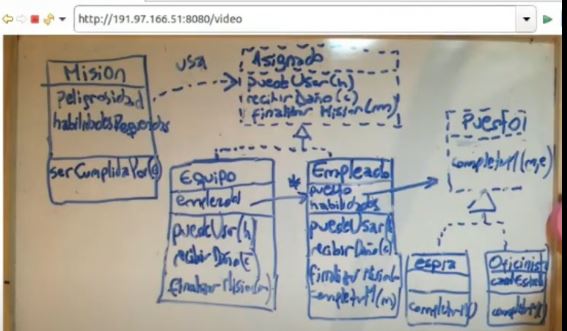 http://191.97.166.51:8080/video
Mision
peligrosidad
habilidadesRequeridas
serCumplidaPor(e)
usa
Asignado
puedeUsar(h)
recibirDaño(c)
finalizarMision(m)
Equipo
empleados
puedeUsar(h)
recibirDaño(c
finalizarMision(m)
*
Empleado
puesto
habilidades
puedeUsar(
recibirDaño(c)
finalizarMision
completarM(m)
Puesto
completarM(m,e)
espia
completarM()
Oficinist